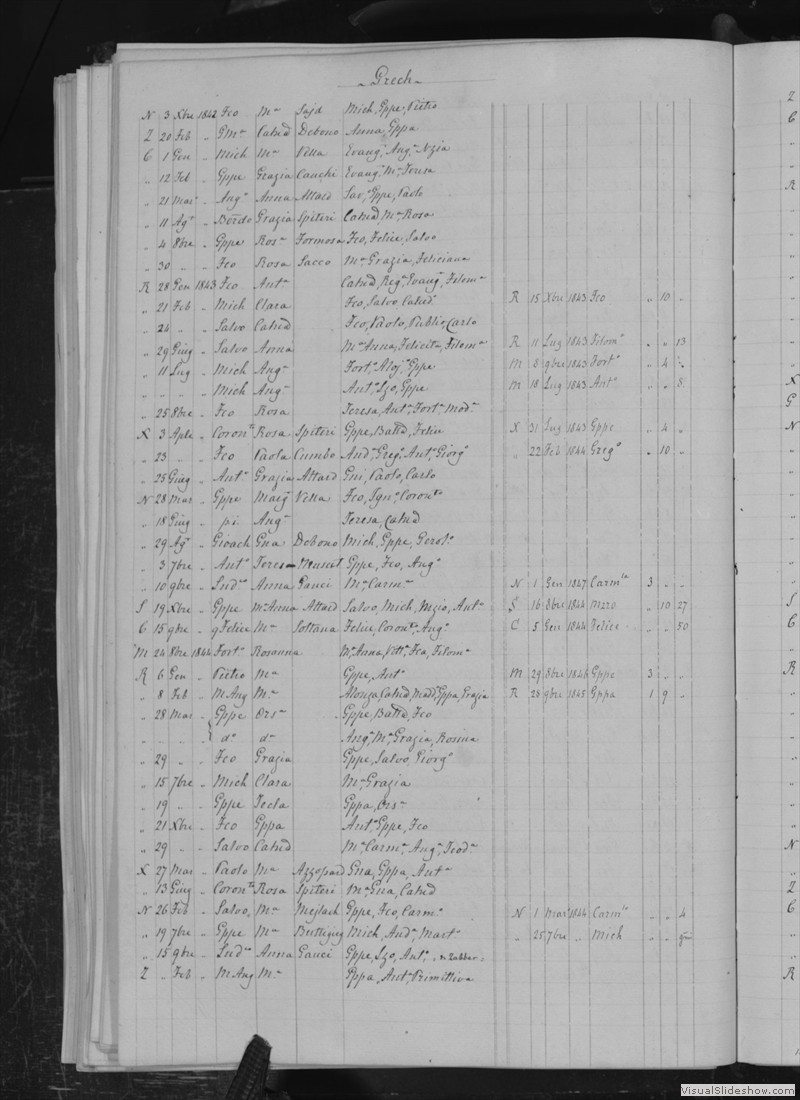 Grech
N 3 Xbre 1842 Fco Mª Sajd Mich, Gppe, Pietro
Z 20 Feb " Catña Debono Anna, Gppa
C 1 Gen " Mich Mª Vella Evangª, Angª, Nzia
" 12 Feb " Gppe Grazia Cauchi Evangª, Mª, Teresa
" 21 Mar " Angº Anna Attard Savª, Gppe, Paolo
" 11 Agº " Berndo Grazia Spiteri Catña Mª Rosa
" 4 8bre " Gppe Rosª Formosa Fco, Felice, Salvo
" 30 " " Fco Rosa Sacco Mª Grazia, Feliciana
R 28 Gen 1843 Fco Antª Catña, Regª, Evangª, Filomª
" 21 Feb " Mich Clara Fco, Salvo, Catña R 15 Xbre 1843 Fco " 10 "
" 24 " " Salvo Catña Fco, Paolo, Publio, Carlo
" 29 Giug " Salvo Anna Mª Anna, Felicita, Filomª R 11 Lug 1843 Filomª " " 13
" 11 Lug " Mich Angª Fortº, Alojº, Gppe M 8 9bre 1843 Fortº " 4
" " " " Mich Angª Antº, Lzo, Gppe M 18 Lug 1843 Antº " " 8
" 25 8bre " Fco Rosa Teresa, Antª, Fortª, Modª
X 3 Aple " Coronto Rosa Spiteri Gppe, Batta, Felice X 31 Lug 1843 Gppe " 4 "
" 23 " " Fco Paola Cumbo Andª, Gregº, Antº, Giorgº " 22 Feb 1844 Gregº " 10 "
" 25 Giug " Antº Grazia Attard Gni, Paolo, Carlo
N 28 Mar " Gppe Margª Vella Fco, Ignº, Coronto
" 18 Giug " p.i. Angª Teresa, Catña
" 29 Agº " Gioach Gna Debono Mich, Gppe, Gerolº
" 3 7bre " Antº Teresa Muscat Gppe, Fco, Angº
" 10 9bre " Anna Gauci Mª Carmª N 1 Gen 1847 Carmla 3 " "
S 19 Xbre " Gppe Mª Anna Attard Salvo, Mich, Antº S 16 8bre 1844 " 10 27
C 15 9bre " Felice Mª Soltana Felice, Corontº, Angº C 5 Gen 1844 Felice " " 50
M 24 8bre 1844 Fortº Rosanna Mª Anna, Vittª, Fca, Filomª
R 6 Gen " Pietro Mª Gppe, Antº M 29 8bre 1846 Gppe 3 " "
" 8 Feb " M Ang Mª Catña, Madª, Gppa, Grazia R 28 9bre 1845 Gppa 1 9 "
" 28 Mar " Gppe Orsª Gppe, Batta, Fco
" " " " dº dª Angª, Mª Grazia, Rosina
" 29 " " Fco Grazia Gppe, Salvo, Giorgº
" 15 7bre " Mich Clara Mª Grazia
" 19 " " Gppe Tecla Gppa, Orsª
" 21 Xbre " Fco Gppa Antº, Gppe, Fco
" 29 " " Salvo Catña Mª Carmª, Angª, Teodª
X 27 Mar " Paolo Mª Azzopard Gna, Gppa, Antª
" 13 Giug " Coronto Rosa Spiteri Mª Gna, Catña
N 26 Feb " Salvo Mª Mejlach Gppe, Fco, Carmº N 1 Mar 1844 Carmlo " " 4
" 19 7bre " Gppe Mª Buttigieg Mich, Andª, Martº " 25 7bre " Mich " "
" 15 9bre " Anna Gauci Gppe, Lzo, Antº, n Zabbar
Z " Feb " M Ang Mª Gppa, Antª, Primitiva
VisualSlideshow.com